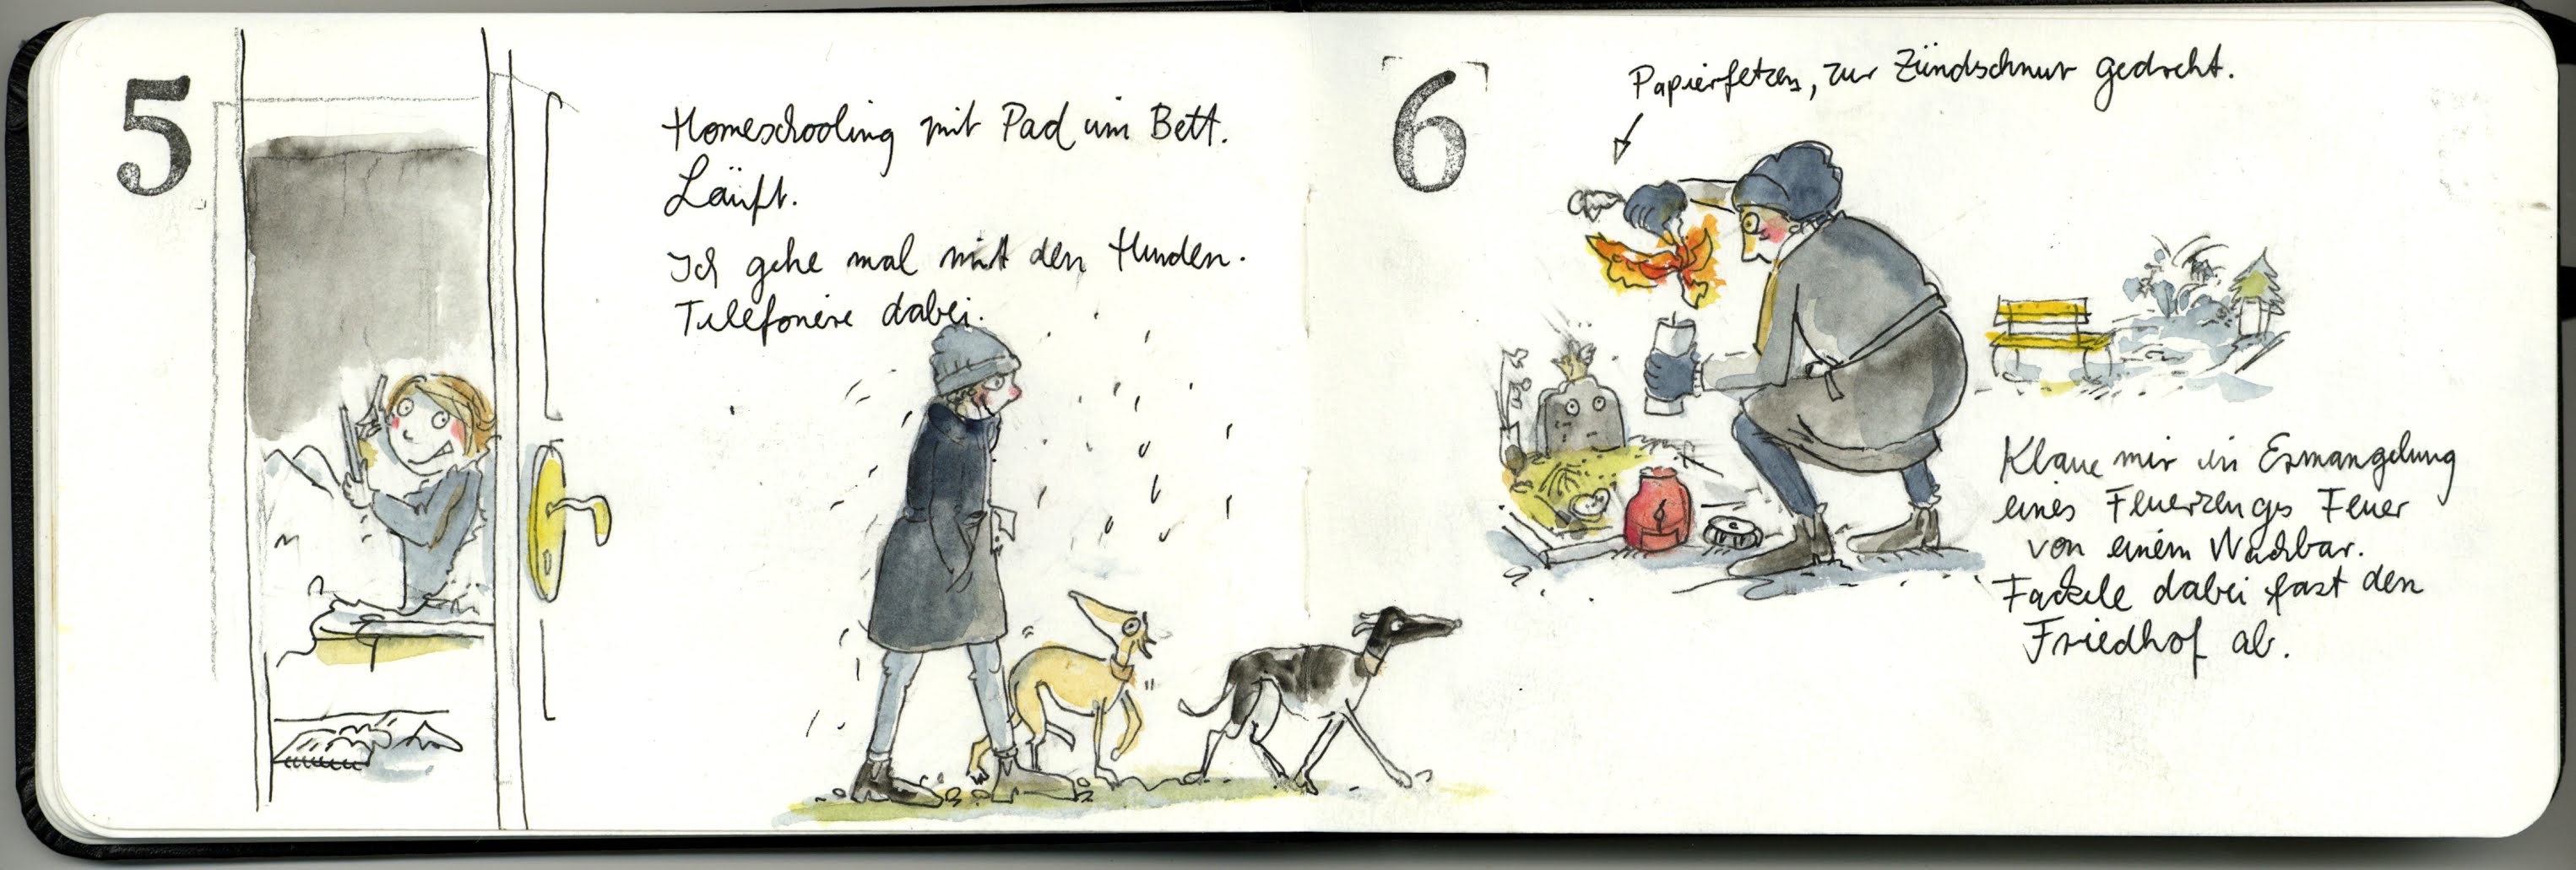 5
Homeschooling mit Pad im Bett.
Läuft.
Ich gehe mal mit den Hunden.
Telefoniere dabei.
6
Papierfetzen, zur Zündschnur gedreht.
Klaue mir in Ermangelung
eines Feuerzeugs Feuer
von einem Nachbar.
Fackele dabei fast den
Friedhof ab.